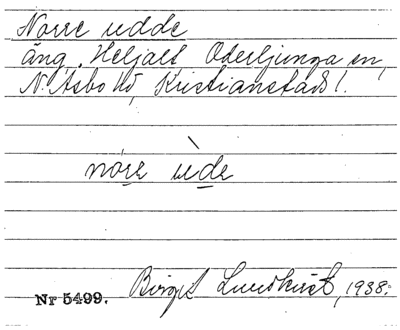 Norre udde
äng. Heljalt Oderljunga sn,
N. Åsbo hd, Kristianstads l.
nore ude
Birgit Lundkvist, 1938.
Nr 5499.